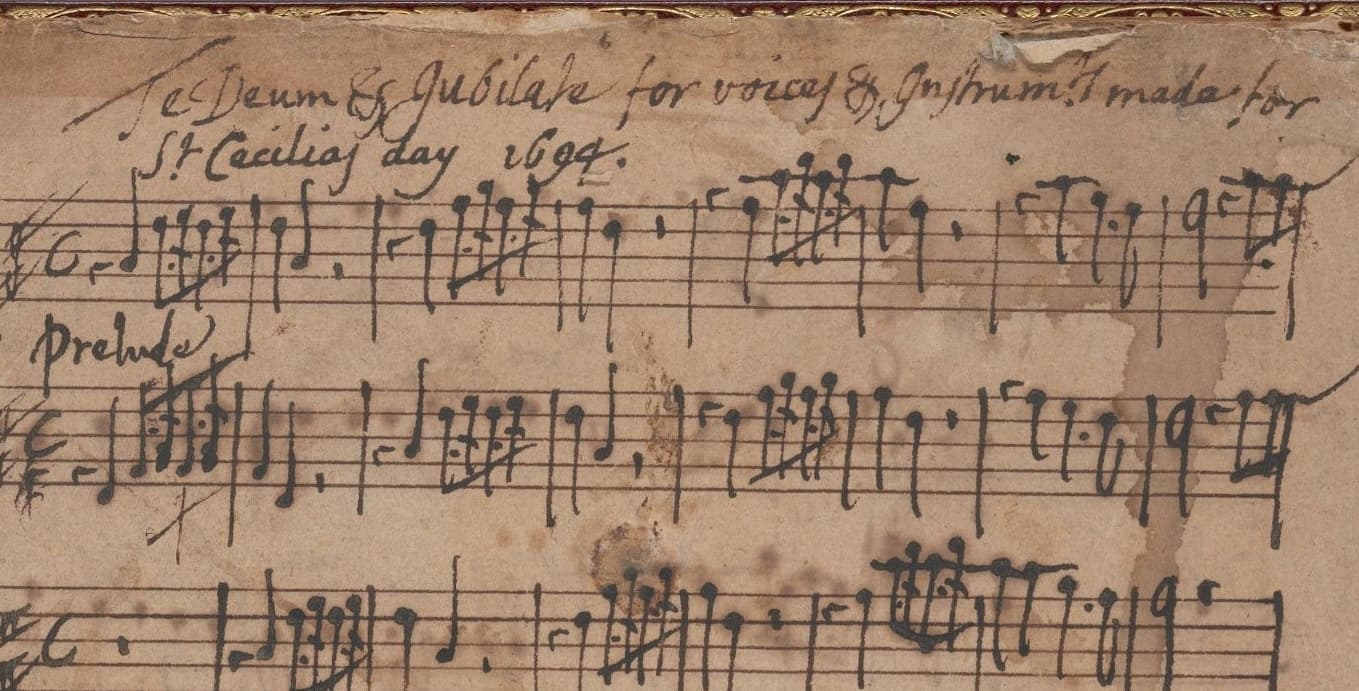 Te Deum & Jubilate for voices & Instrumts made for
St Cecilias day 1694.
Prelude